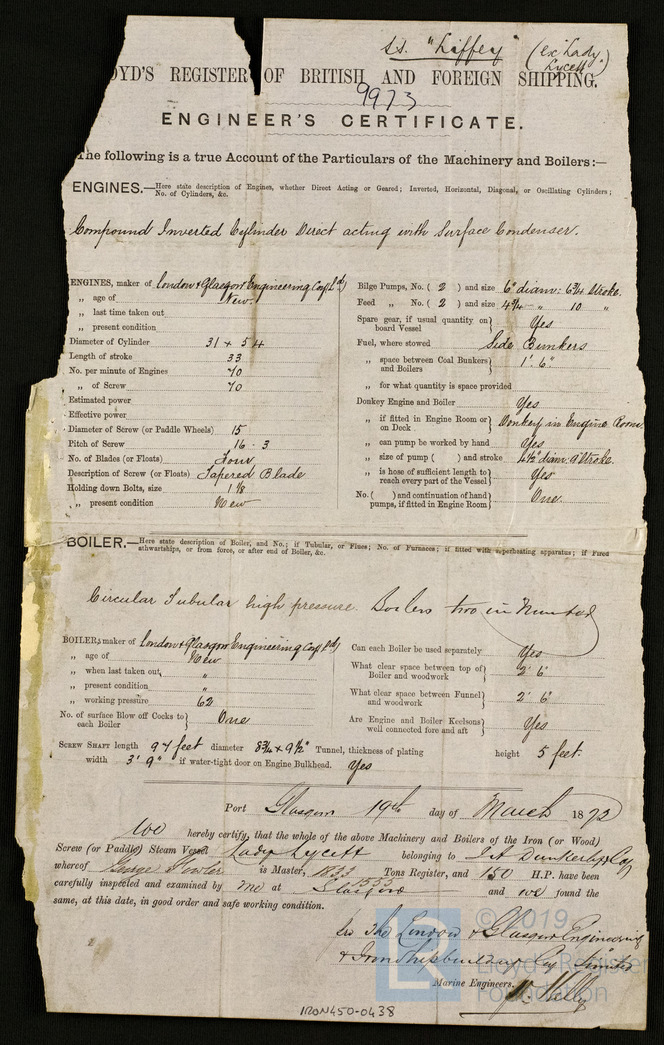 ss. "Liffey" (ex Lady Lycett)
OYD'S REGISTER OF BRITISH AND FOREIGN SHIPPING.
9973
ENGINEER'S CERTIFICATE.
The following is a true Account of the Particulars of the Machinery and Boilers:—
ENGINES.—Here state description of Engines, whether Direct Acting or Geared; Inverted, Horizontal, Diagonal, or Oscillating Cylinders;
No. of Cylinders, &c.
Compound Inverted Cylinder Direct acting with Surface Condenser.
ENGINES, maker of London & Glasgow Engineering Coy (Ld)
„ age of New.
„ last time taken out
„ present condition
Diameter of Cylinder 31 + 54
Length of stroke 33
No. per minute of Engines 70
„ of Screw 70
Estimated power
Effective power
Diameter of Screw (or Paddle Wheels) 15
Pitch of Screw 16 . 3
No. of Blades (or Floats) Four
Description of Screw (or Floats) Tapered Blade
Holding down Bolts, size 1 1/8
„ present condition New
Bilge Pumps, No. ( 2 ) and size 6" diam: 6 3/4 Stroke.
Feed „ No. ( 2 ) and size 4 3/4 " 10 "
Spare gear, if usual quantity on board Vessel } Yes
Fuel, where stowed Side Bunkers
„ space between Coal Bunkers and Boilers } 1'. 6"
„ for what quantity is space provided
Donkey Engine and Boiler Yes
„ if fitted in Engine Room or on Deck } Donkey in Engine Room
„ can pump be worked by hand Yes
„ size of pump ( ) and stroke 4 1/2" diam: 9" Stroke.
„ is hose of sufficient length to reach every part of the Vessel } Yes
No. ( ) and continuation of hand pumps, if fitted in Engine Room } One.
BOILER.—Here state description of Boiler, and No.; if Tubular, or Flues; No. of Furnaces; if fitted with superheating apparatus; if Fired
athwartships, or from force, or after end of Boiler, &c.
Circular Tubular high pressure. Boilers two in Number
BOILER, maker of London & Glasgow Engineering Coy (Ld)
„ age of New
„ when last taken out, "
„ present condition "
„ working pressure 62
No. of surface Blow off Cocks to each Boiler } One
Can each Boiler be used separately Yes
What clear space between top of Boiler and woodwork } 2' 6"
What clear space between Funnel and woodwork } 2' 6"
Are Engine and Boiler Keelsons well connected fore and aft } Yes
SCREW SHAFT length 97 feet diameter 8 3/4 & 9 1/2" Tunnel, thickness of plating height 5 feet.
width 3' 9" if water-tight door on Engine Bulkhead. Yes
Port Glasgow 19th day of March 1872
We hereby certify, that the whole of the above Machinery and Boilers of the Iron (or Wood)
Screw (or Paddle) Steam Vessel Lady Lycett belonging to Dunkerley & Coy
whereof George Fowler is Master, Tons Register, and 150 H.P. have been
carefully inspected and examined by me at Glasgow and we found the
same, at this date, in good order and safe working condition.
The London & Glasgow Engineering
& Iron Shipbuilding Coy Limited
Marine Engineers.
Kelly
© 2019
LR
Lloyd's Register
Foundation
IRON450-0438